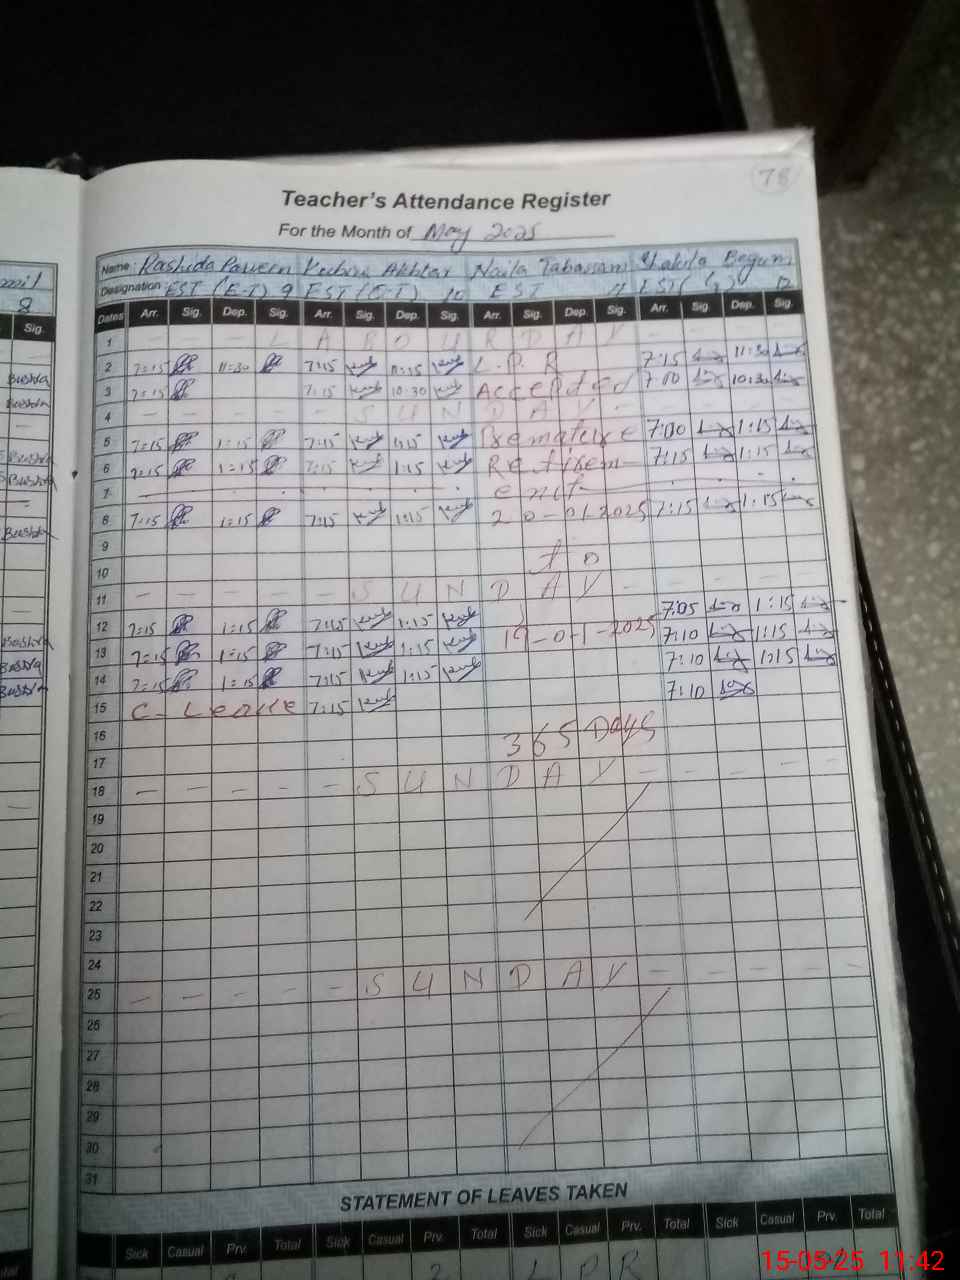 78
Teacher's Attendance Register
For the Month of May 2025
Name: Rashida Parveen Akhtar Naila Tabassam Shakila Begum
Designation: EST (E-T) 9 EST (E-T) 10 EST 11 EST 12
8
Sig.
Dates Arr. Sig. Dep. Sig. Arr. Sig. Dep. Sig. Arr. Sig. Dep. Sig. Arr. Sig. Dep. Sig.
1 - - - L A B O U R D A Y - - - -
2 7=15 11=30 7:15 11:15 L.P.R 7:15 11:30
Bushra 3 7=15 7:15 10:30 Accepted 7:00 10:30
Bushra 4 - - - - - S U N D A Y - - - - -
5 7=15 1=15 7:15 1:15 Premature 7:00 1:15
Bushra 6 7=15 1=15 7:15 1:15 Retirem- 7:15 1:15
Bushra 7 ent
Bushra 8 7=15 1=15 7:15 1:15 20-01-2025 7:15 1:15
9
10 to
11 - - - - - S U N D A Y - - - - -
12 7=15 1=15 7:15 1:15 7:05 1:15
Bushra 13 7=15 1=15 7:15 1:15 19-01-2025 7:10 1:15
Bushra 14 7=15 1=15 7:15 1:15 7:10 1:15
Bushra 15 C- Leave 7:15 7:10
16
17 365 Days
18 - - - - - S U N D A Y - - - - -
19
20
21
22
23
24
25 - - - - - S U N D A Y - - - - -
26
27
28
29
30
31
STATEMENT OF LEAVES TAKEN
Sick Casual Prv. Total Sick Casual Prv. Total Sick Casual Prv. Total Sick Casual Prv. Total
2 L P R
15-05-25 11:42